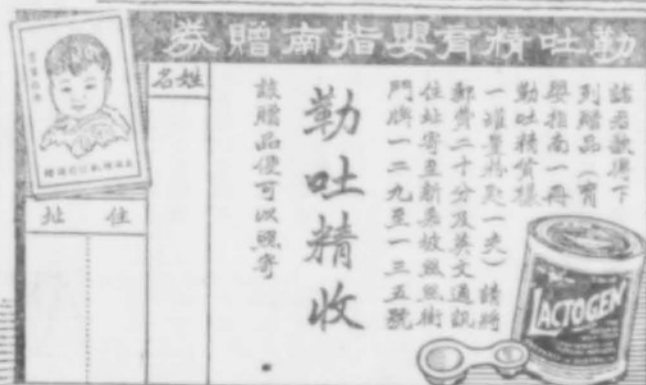 勒吐精育嬰指南贈券
諸君欲與下
列贈品（育
嬰指南一冊
勒吐精貨樣
一罐量粉匙一夾）請將
郵費二十分及英文通訊
住址寄至新嘉坡絲絲街
門牌一二九至一三五號
勒吐精收
該贈品便可以照寄
姓名
住址
LACTOGEN